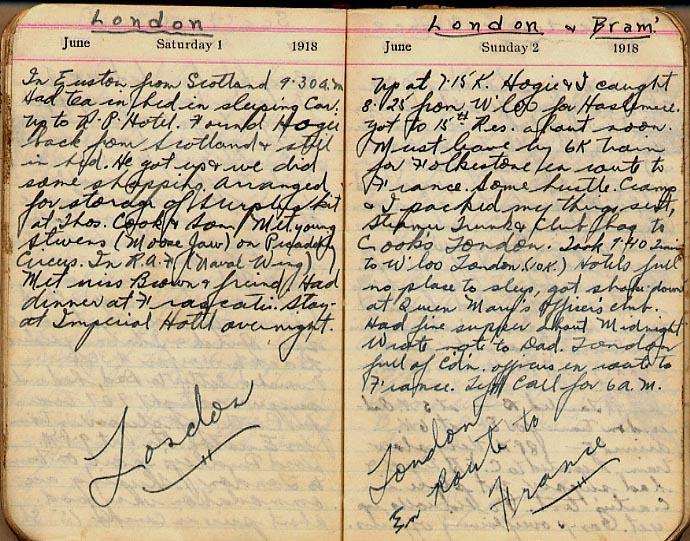 London
June Saturday 1 1918
In Euston from Scotland 9.30 a.m
Had tea in bed in sleeping Car.
up to R.P. Hotel. Found Hogie
back from Scotland & still
in bed. He got up & we did
some shopping. Arranged
for storage of surplus kit
at Thos. Cook & Son. Met young
Stivens (Moose Jaw) on Picadilly
Circus. In R.A.F. (Naval Wing)
Met miss Brown & friend. Had
dinner at Frascati. Stay-
at Imperial Hotel overnight.
London
London & Bram.
June Sunday 2 1918
up at 7.15 K. Hogie & I caught
8.25 from W'loo for Haslemere.
got to 15th Res. about noon.
Must leave by 6K train
for Folkestone en route to
France. Some hustle. Cramp
& I packed my things, sent
Steamer Trunk & Club bag to
Cooks London. Took 9.40 train
to W'loo London. (10K.) Hotels full
no place to sleep, got shake down
at Queen Mary's Officers club.
Had fine supper about Midnight
Wrote note to Dad. London
full of Cdn. officers en route to
France. Left Call for 6 a.m.
London
En Route to
France